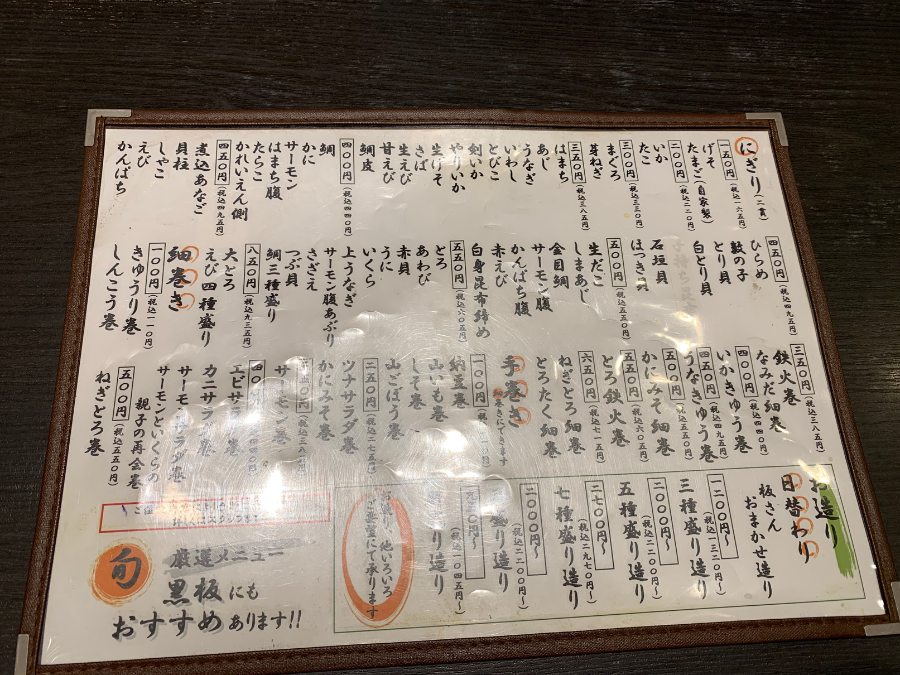 にぎり(二貫)
一五〇円(税込一六五円)
げそ
たまご(自家製)
二〇〇円(税込二二〇円)
いか
たこ
三〇〇円(税込三三〇円)
まぐろ
芽ねぎ
三五〇円(税込三八五円)
はまち
あじ
うなぎ
いわし
とびこ
剣いか
やりいか
生げそ
さば
生えび
甘えび
鯛皮
四〇〇円(税込四四〇円)
鯛
かに
サーモン
はまち腹
たらこ
かれいえん側
四五〇円(税込四九五円)
煮込あなご
貝柱
しゃこ
えび
かんぱち
四五〇円(税込四九五円)
ひらめ
数の子
とり貝
白とり貝
石垣貝
ほっき貝
五〇〇円(税込五五〇円)
生だこ
しまあじ
金目鯛
サーモン腹
かんぱち腹
赤えび
白身昆布締め
五五〇円(税込六〇五円)
とろ
あわび
赤貝
うに
いくら
上うなぎ
サーモン腹あぶり
さざえ
つぶ貝
鯛三種盛り
八五〇円(税込九三五円)
大とろ
えび四種盛り
細巻き
一〇〇円(税込一一〇円)
きゅうり巻
しんこう巻
三五〇円(税込三八五円)
鉄火巻
なみだ細巻
四〇〇円(税込四四〇円)
いかきゅう巻
四五〇円(税込四九五円)
うなきゅう巻
五〇〇円(税込五五〇円)
かにみそ細巻
五五〇円(税込六〇五円)
とろ鉄火巻
六五〇円(税込七一五円)
ねぎとろ細巻
とろたく細巻
手巻き
細巻きにできます
一〇〇円
納豆巻
山いも巻
しそ巻
山ごぼう巻
二五〇円(税込二七五円)
ツナサラダ巻
かにみそ巻
サーモン巻
エビサラダ巻
カニサラダ巻
サーモンサラダ巻
サーモンといくらの
親子の再会巻
五〇〇円(税込五五〇円)
ねぎとろ巻
お造り
日替わり
板さん
おまかせ造り
一二〇〇円〜
(税込一三二〇円〜)
三種盛り造り
二〇〇〇円〜
(税込二二〇〇円〜)
五種盛り造り
二七〇〇円〜
(税込二九七〇円〜)
七種盛り造り
二〇〇〇円〜
(税込二二〇〇円〜)
盛り造り
(税込一〇四五円〜)
り造り
他いろいろ
ご要望にて承ります
旬
厳選メニュー
黒板にも
おすすめあります!!